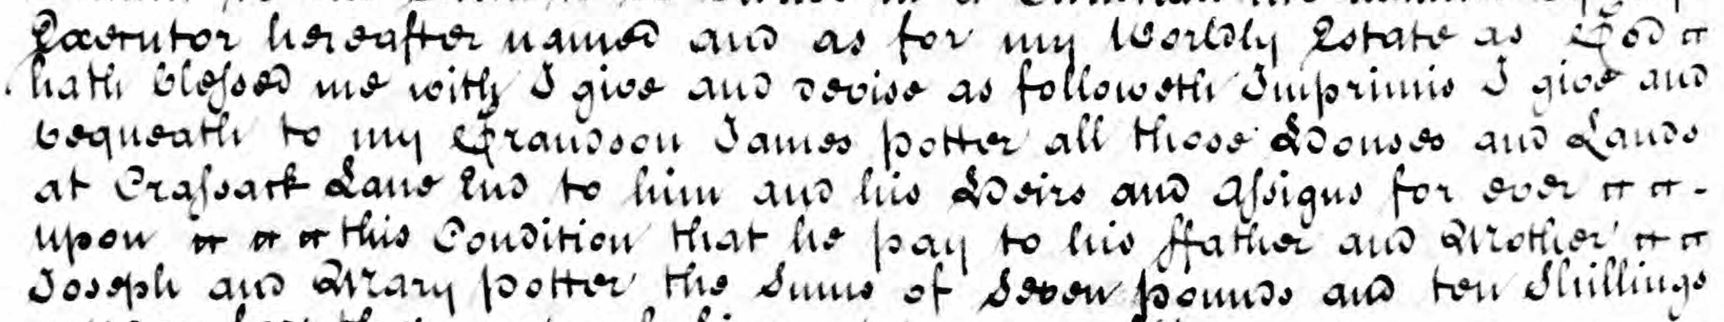 Executor hereafter named and as for my Worldly Estate as God
hath blessed me with I give and devise as followeth Imprimis I give and
bequeath to my Grandson James Potter all those Houses and Lands
at Crassack Lane End to him and his Heirs and Assigns for ever
upon this Condition that he pay to his ffather and Mother
Joseph and Mary Potter the Sume of Seven pounds and ten Shillings